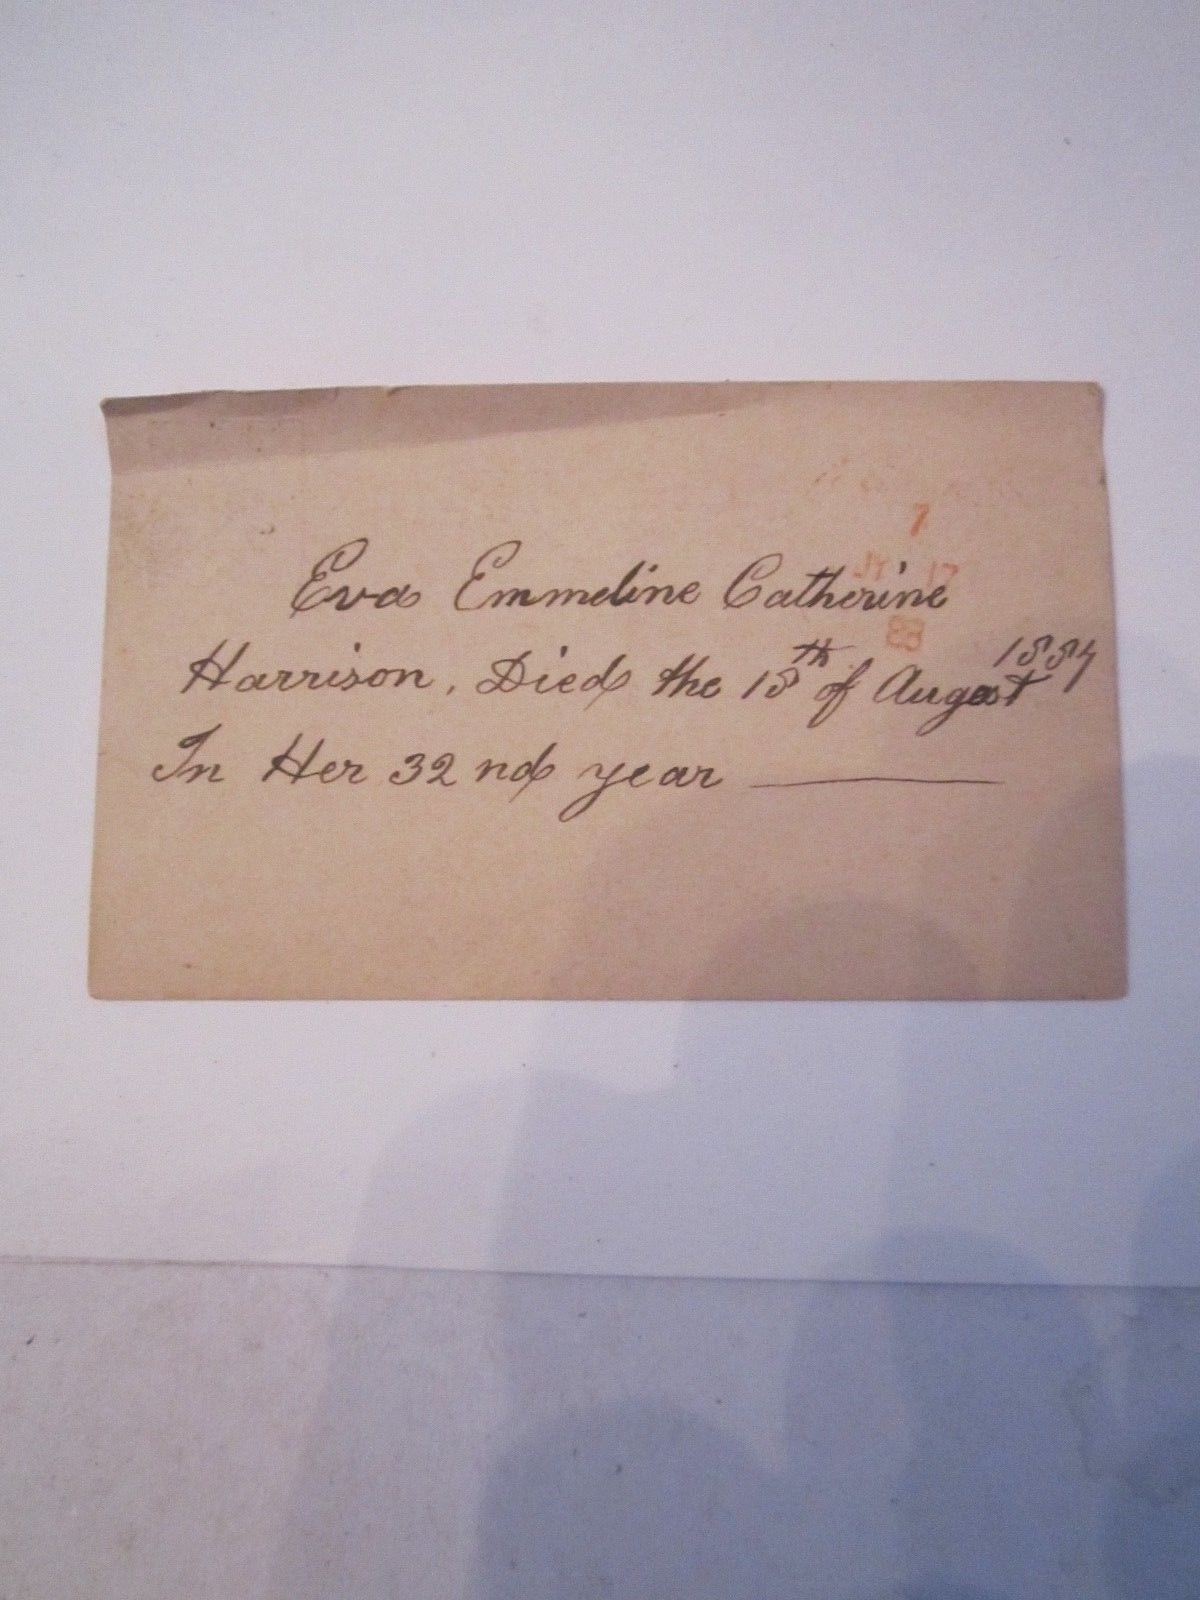 7
JY 17
88
Eva Emmeline Catherine
Harrison, Died the 18th of August 1887
In Her 32nd year